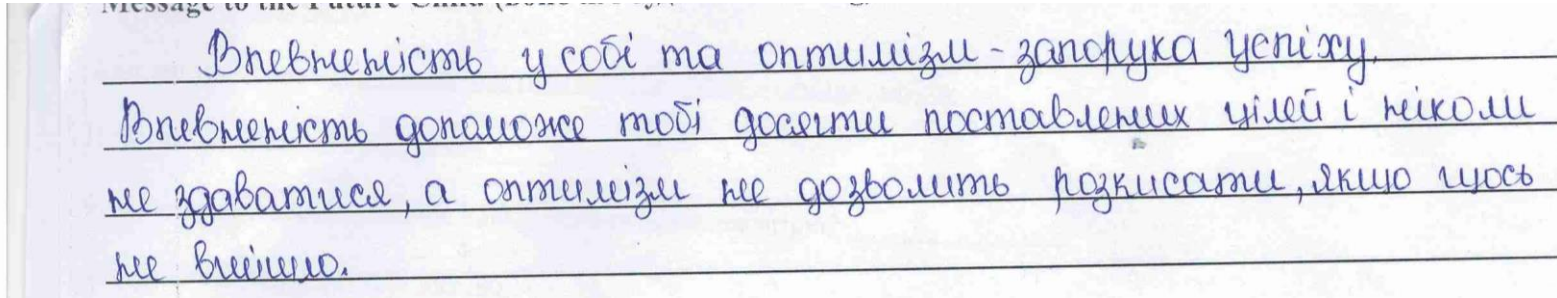 Message to the Future Child
Впевненість у собі та оптимізм - запорука успіху.
Впевненість допоможе тобі досягти поставлених цілей і ніколи
не здаватися, а оптимізм не дозволить розкисати, якщо щось
не вийшло.